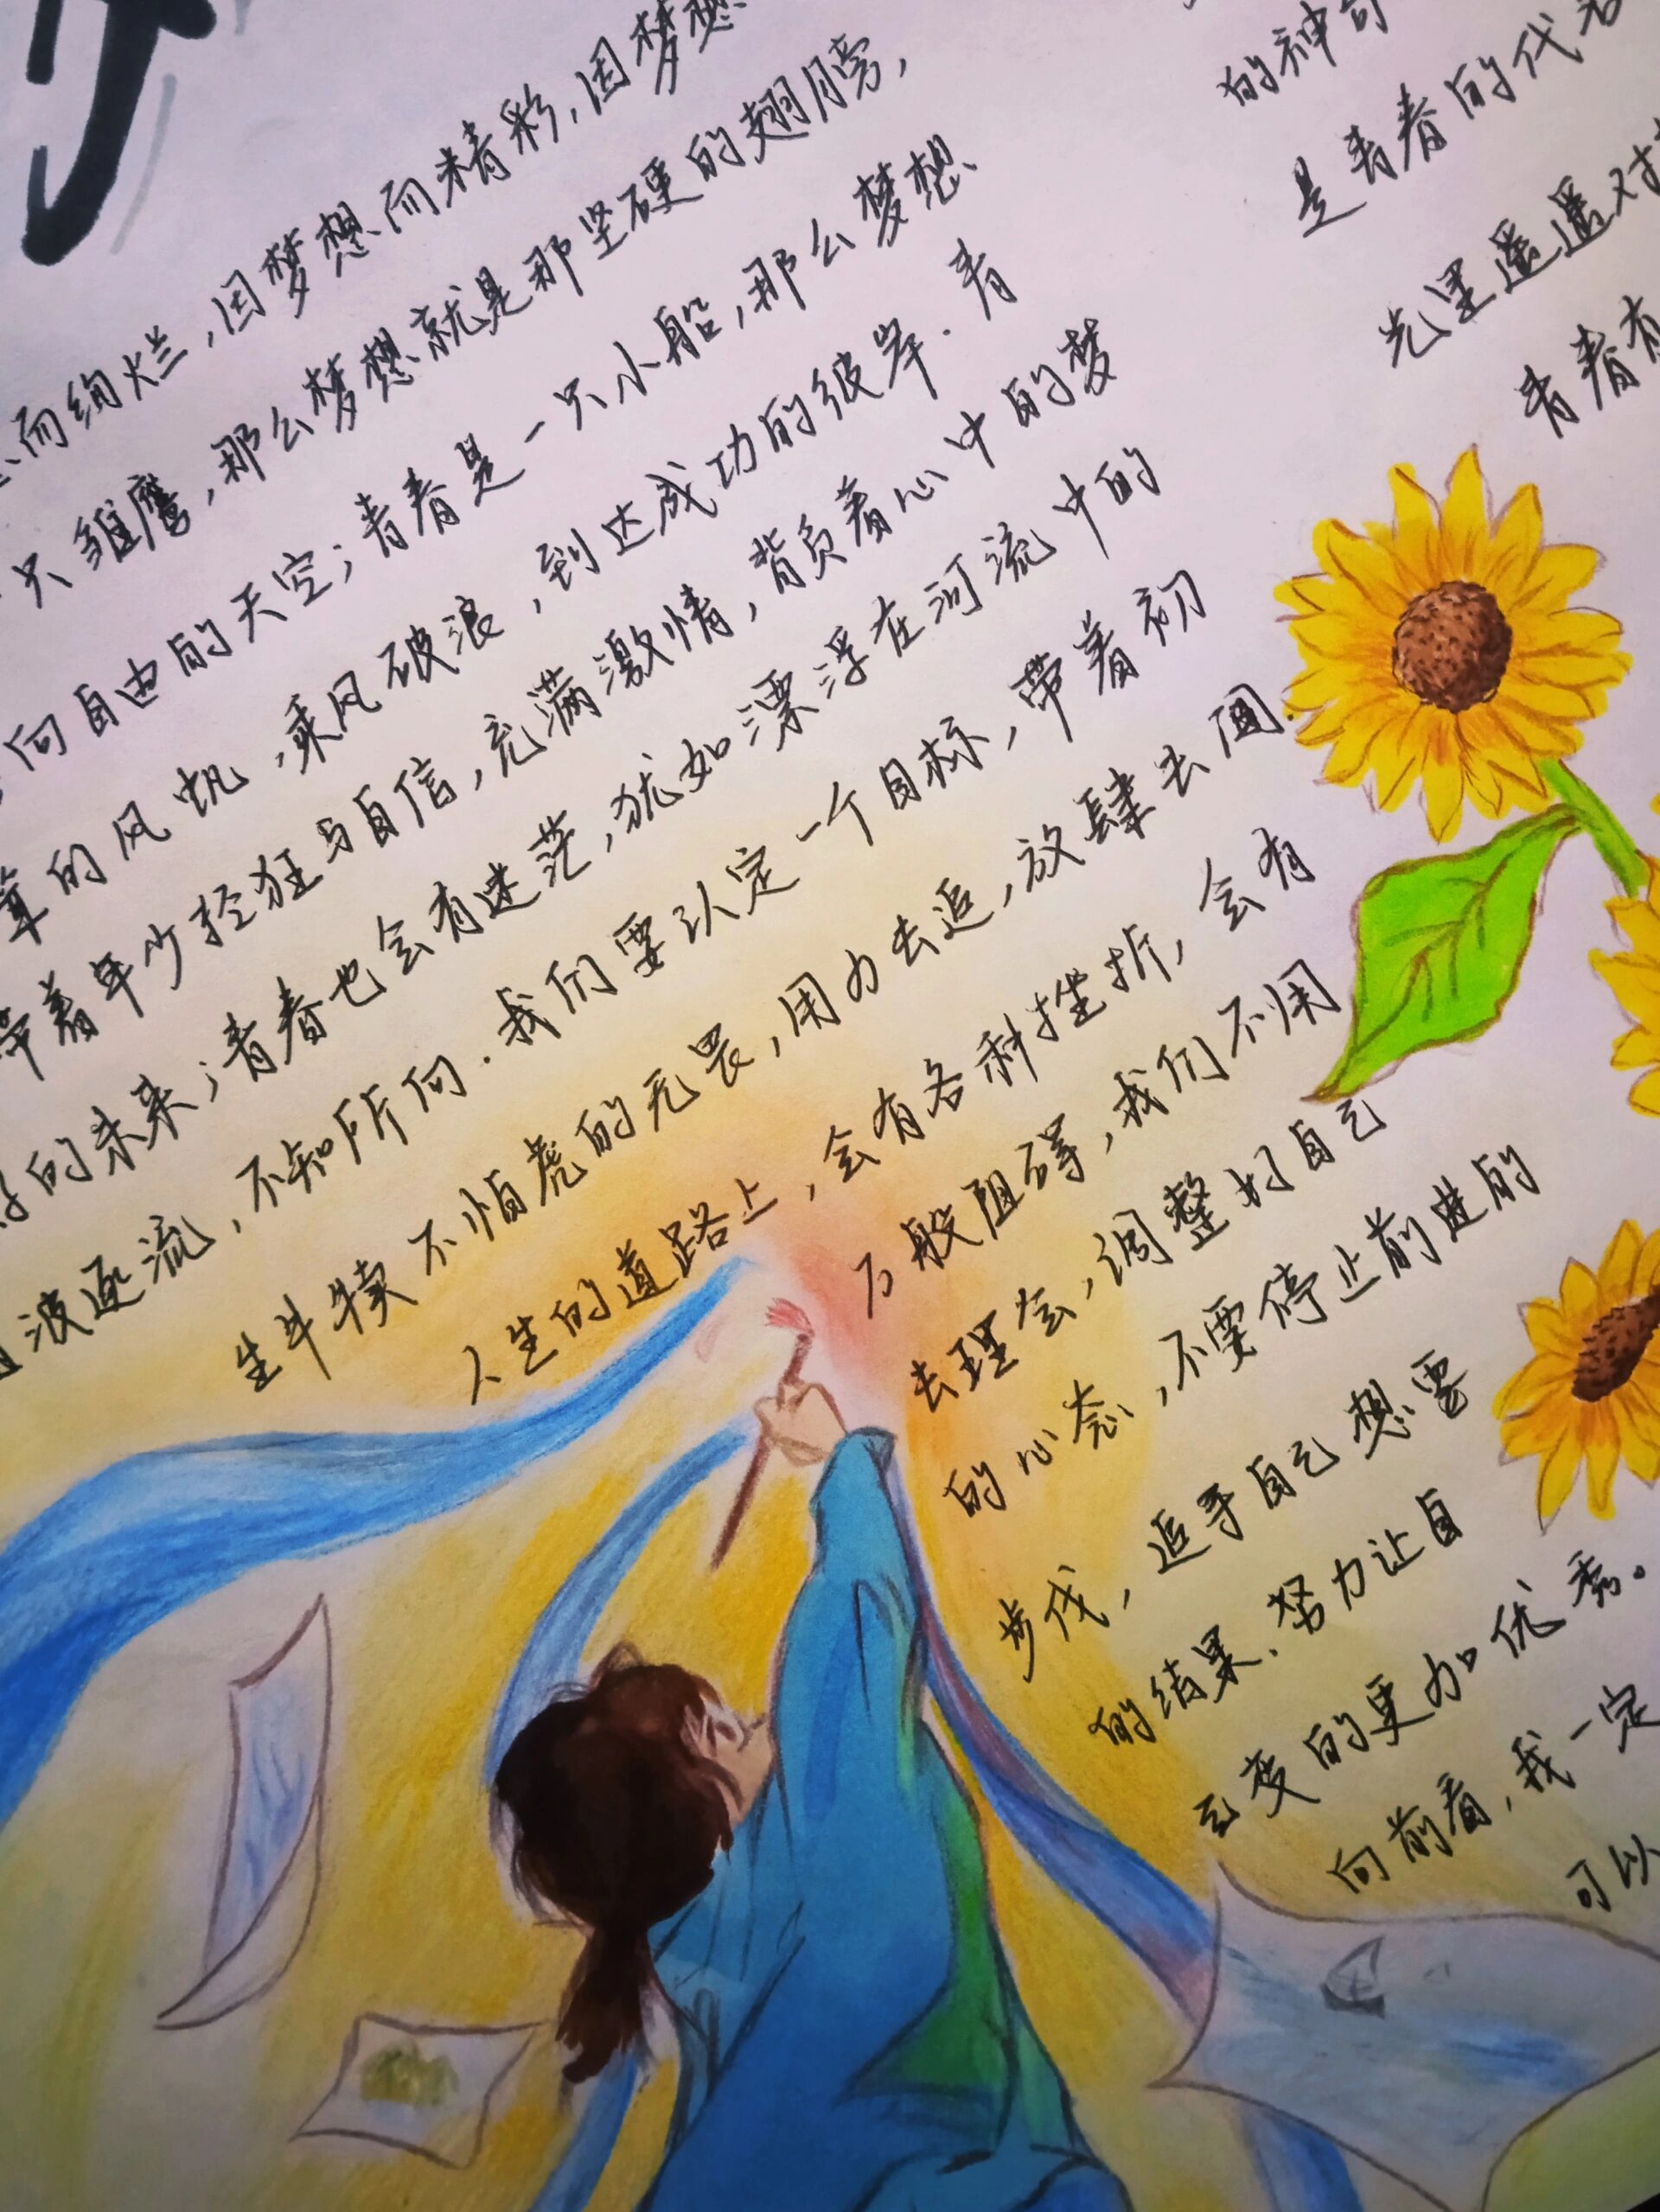 而绚烂，因梦想而精彩，因梦想
只雏鹰，那么梦想就是那坚硬的翅膀，
向自由的天空；青春是一只小船，那么梦想
的风帆，乘风破浪，到达成功的彼岸．青
带着年少轻狂与自信，充满激情，背负着心中的梦
的未来；青春也会有迷茫，犹如漂浮在河流中的
波逐流，不知所向．我们要认定一个目标，带着初
生牛犊不怕虎的无畏，用力去追，放肆去闯．
人生的道路上，会有各种挫折，会有
万般阻碍，我们不用
去理会，调整好自己
的心态，不要停止前进的
步伐，追寻自己想要
的结果．努力让自
己变的更加优秀。
向前看，我一定
可以
的神奇
是青春的代
光里遥遥对
青春有